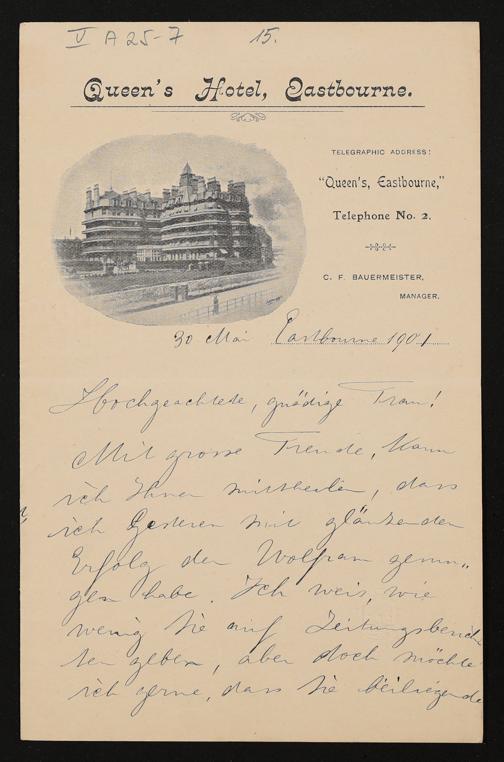 V A 25-7 15.
Queen's Hotel, Eastbourne.
TELEGRAPHIC ADDRESS:
"Queen's, Eastbourne,"
Telephone No. 2.
C. F. BAUERMEISTER,
MANAGER.
30 Mai Eastbourne 1901
Hochgeachtete, gnädige Frau!
Mit grosse Freude, kann
ich Ihnen mittheilen, dass
ich Gesteren mit glänzenden
Erfolg den Wolfram gesun„
gen habe. Ich weis, wie
wenig Sie auf Zeitungsberich
ten geben, aber doch möchte
ich gerne, dass Sie beiliegende